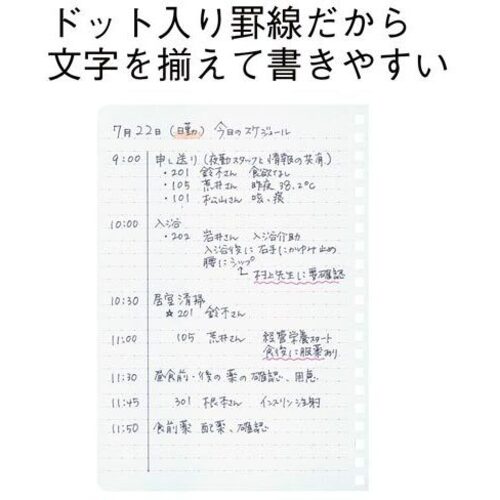 ドット入り罫線だから
文字を揃えて書きやすい
7月22日 (日勤) 今日のスケジュール
9:00 申し送り (夜勤スタッフと情報の共有)
・201 鈴木さん 食欲なし
・105 荒井さん 昨夜 38.2℃
・101 松山さん 咳、痰
10:00 入浴
・202 岩井さん 入浴介助
入浴後に右手にかゆみ止め
腰にシップ
村上先生に要確認
10:30 居室清掃
☆201 鈴木さん
11:00 105 荒井さん 経管栄養スタート
食後に服薬あり
11:30 昼食前・後の薬の確認、用意
11:45 301 根本さん インスリン注射
11:50 食前薬 配薬、確認